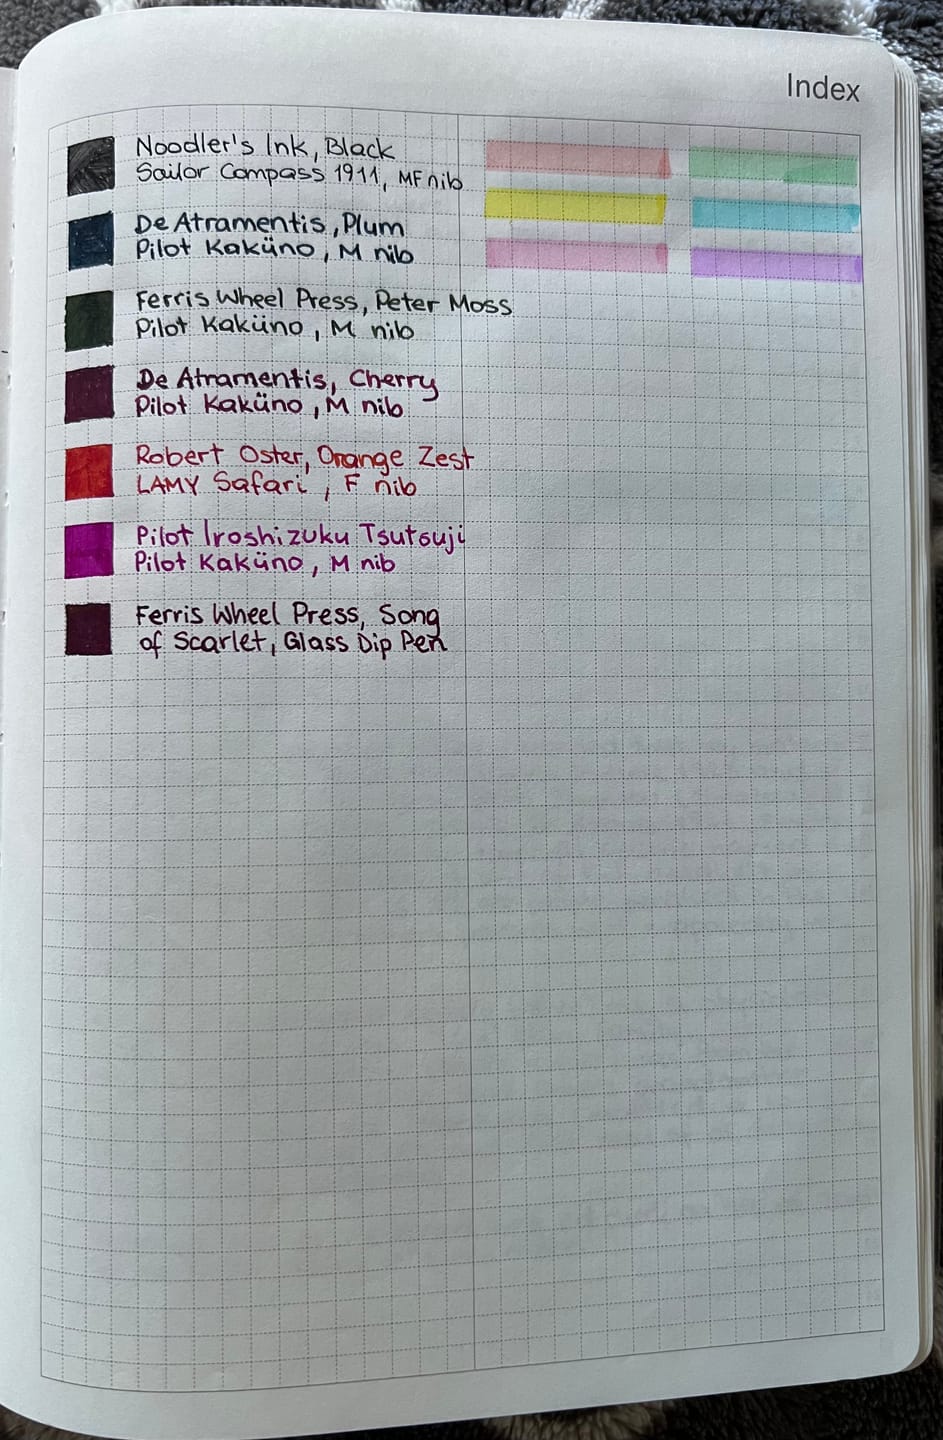 Index
Noodler's Ink, Black
Sailor Compass 1911, MF nib
De Atramentis, Plum
Pilot Kaküno, M nib
Ferris Wheel Press, Peter Moss
Pilot Kaküno, M nib
De Atramentis, Cherry
Pilot Kaküno, M nib
Robert Oster, Orange Zest
LAMY Safari, F nib
Pilot Iroshizuku Tsutsuji
Pilot Kaküno, M nib
Ferris Wheel Press, Song
of Scarlet, Glass Dip Pen